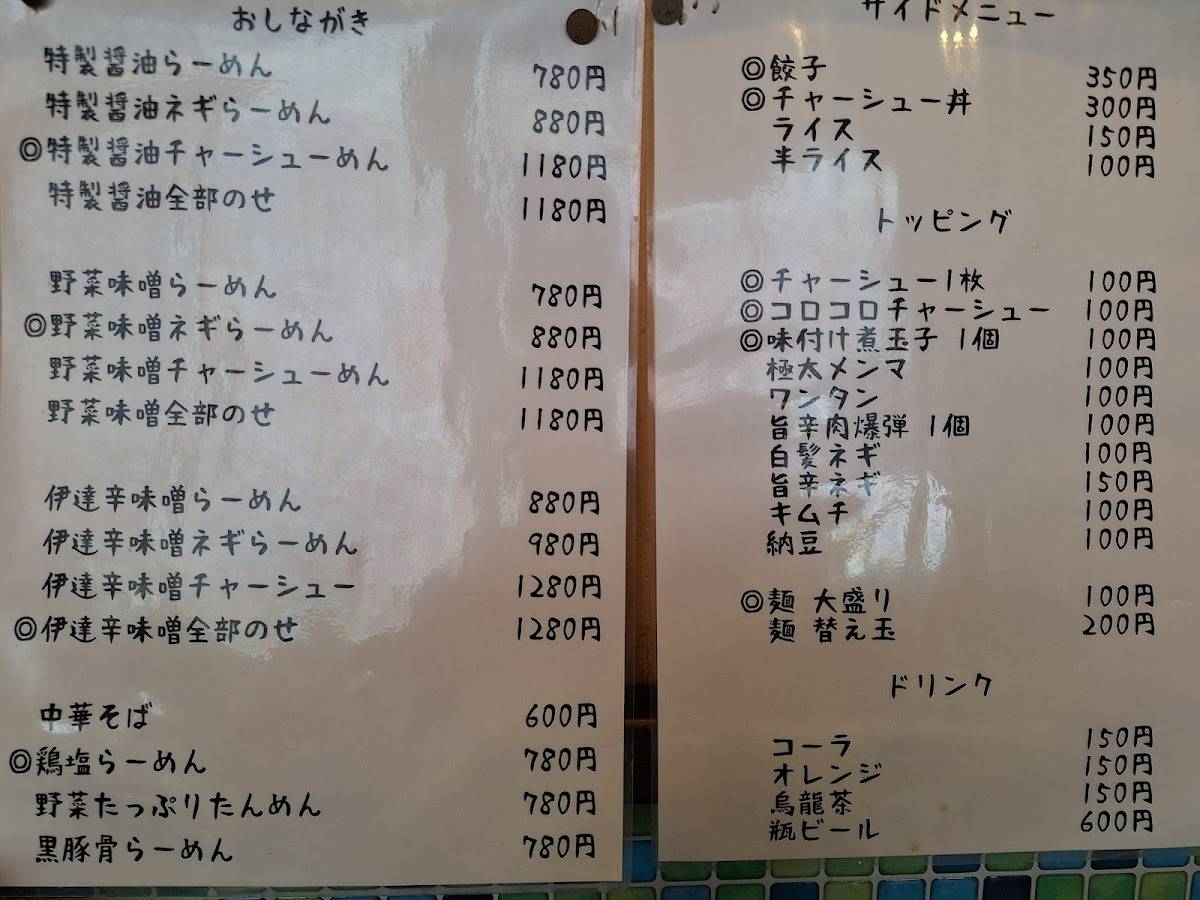 おしながき
特製醤油らーめん 780円
特製醤油ネギらーめん 880円
◎特製醤油チャーシューめん 1180円
特製醤油全部のせ 1180円
野菜味噌らーめん 780円
◎野菜味噌ネギらーめん 880円
野菜味噌チャーシューめん 1180円
野菜味噌全部のせ 1180円
伊達辛味噌らーめん 880円
伊達辛味噌ネギらーめん 980円
伊達辛味噌チャーシュー 1280円
◎伊達辛味噌全部のせ 1280円
中華そば 600円
◎鶏塩らーめん 780円
野菜たっぷりたんめん 780円
黒豚骨らーめん 780円
サイドメニュー
◎餃子 350円
◎チャーシュー丼 300円
ライス 150円
半ライス 100円
トッピング
◎チャーシュー1枚 100円
◎コロコロチャーシュー 100円
◎味付け煮玉子 1個 100円
極太メンマ 100円
ワンタン 100円
旨辛肉爆弾 1個 100円
白髪ネギ 100円
旨辛ネギ 150円
キムチ 100円
納豆 100円
◎麺 大盛り 100円
麺 替え玉 200円
ドリンク
コーラ 150円
オレンジ 150円
烏龍茶 150円
瓶ビール 600円